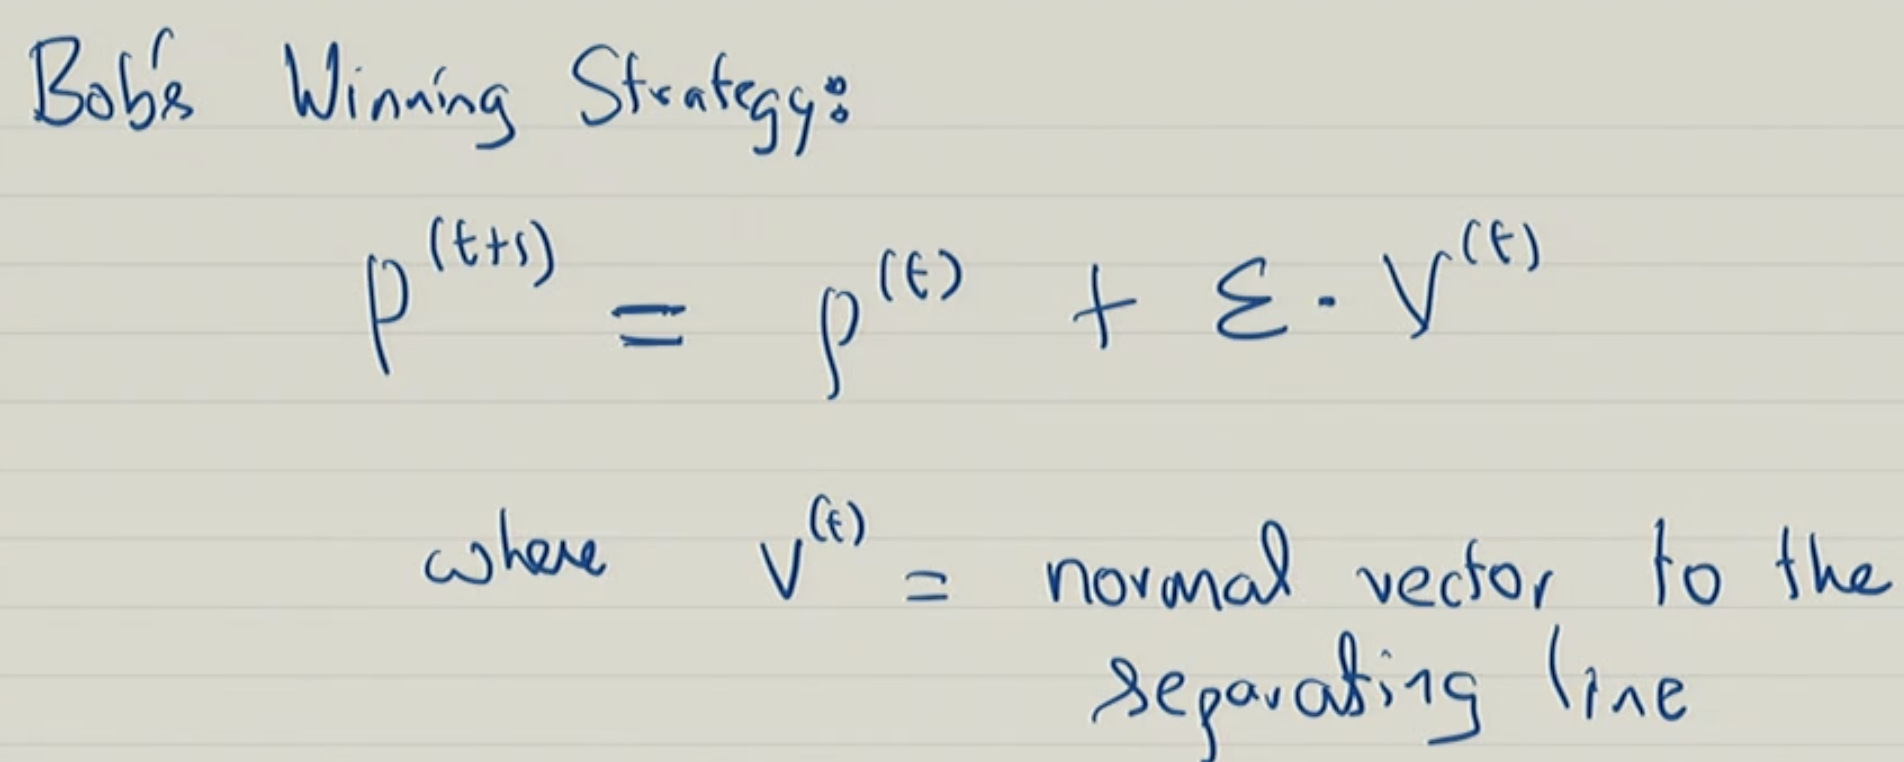 Bob's Winning Strategy:
p^(t+1) = p^(t) + ε · v^(t)
where v^(t) = normal vector to the
separating line